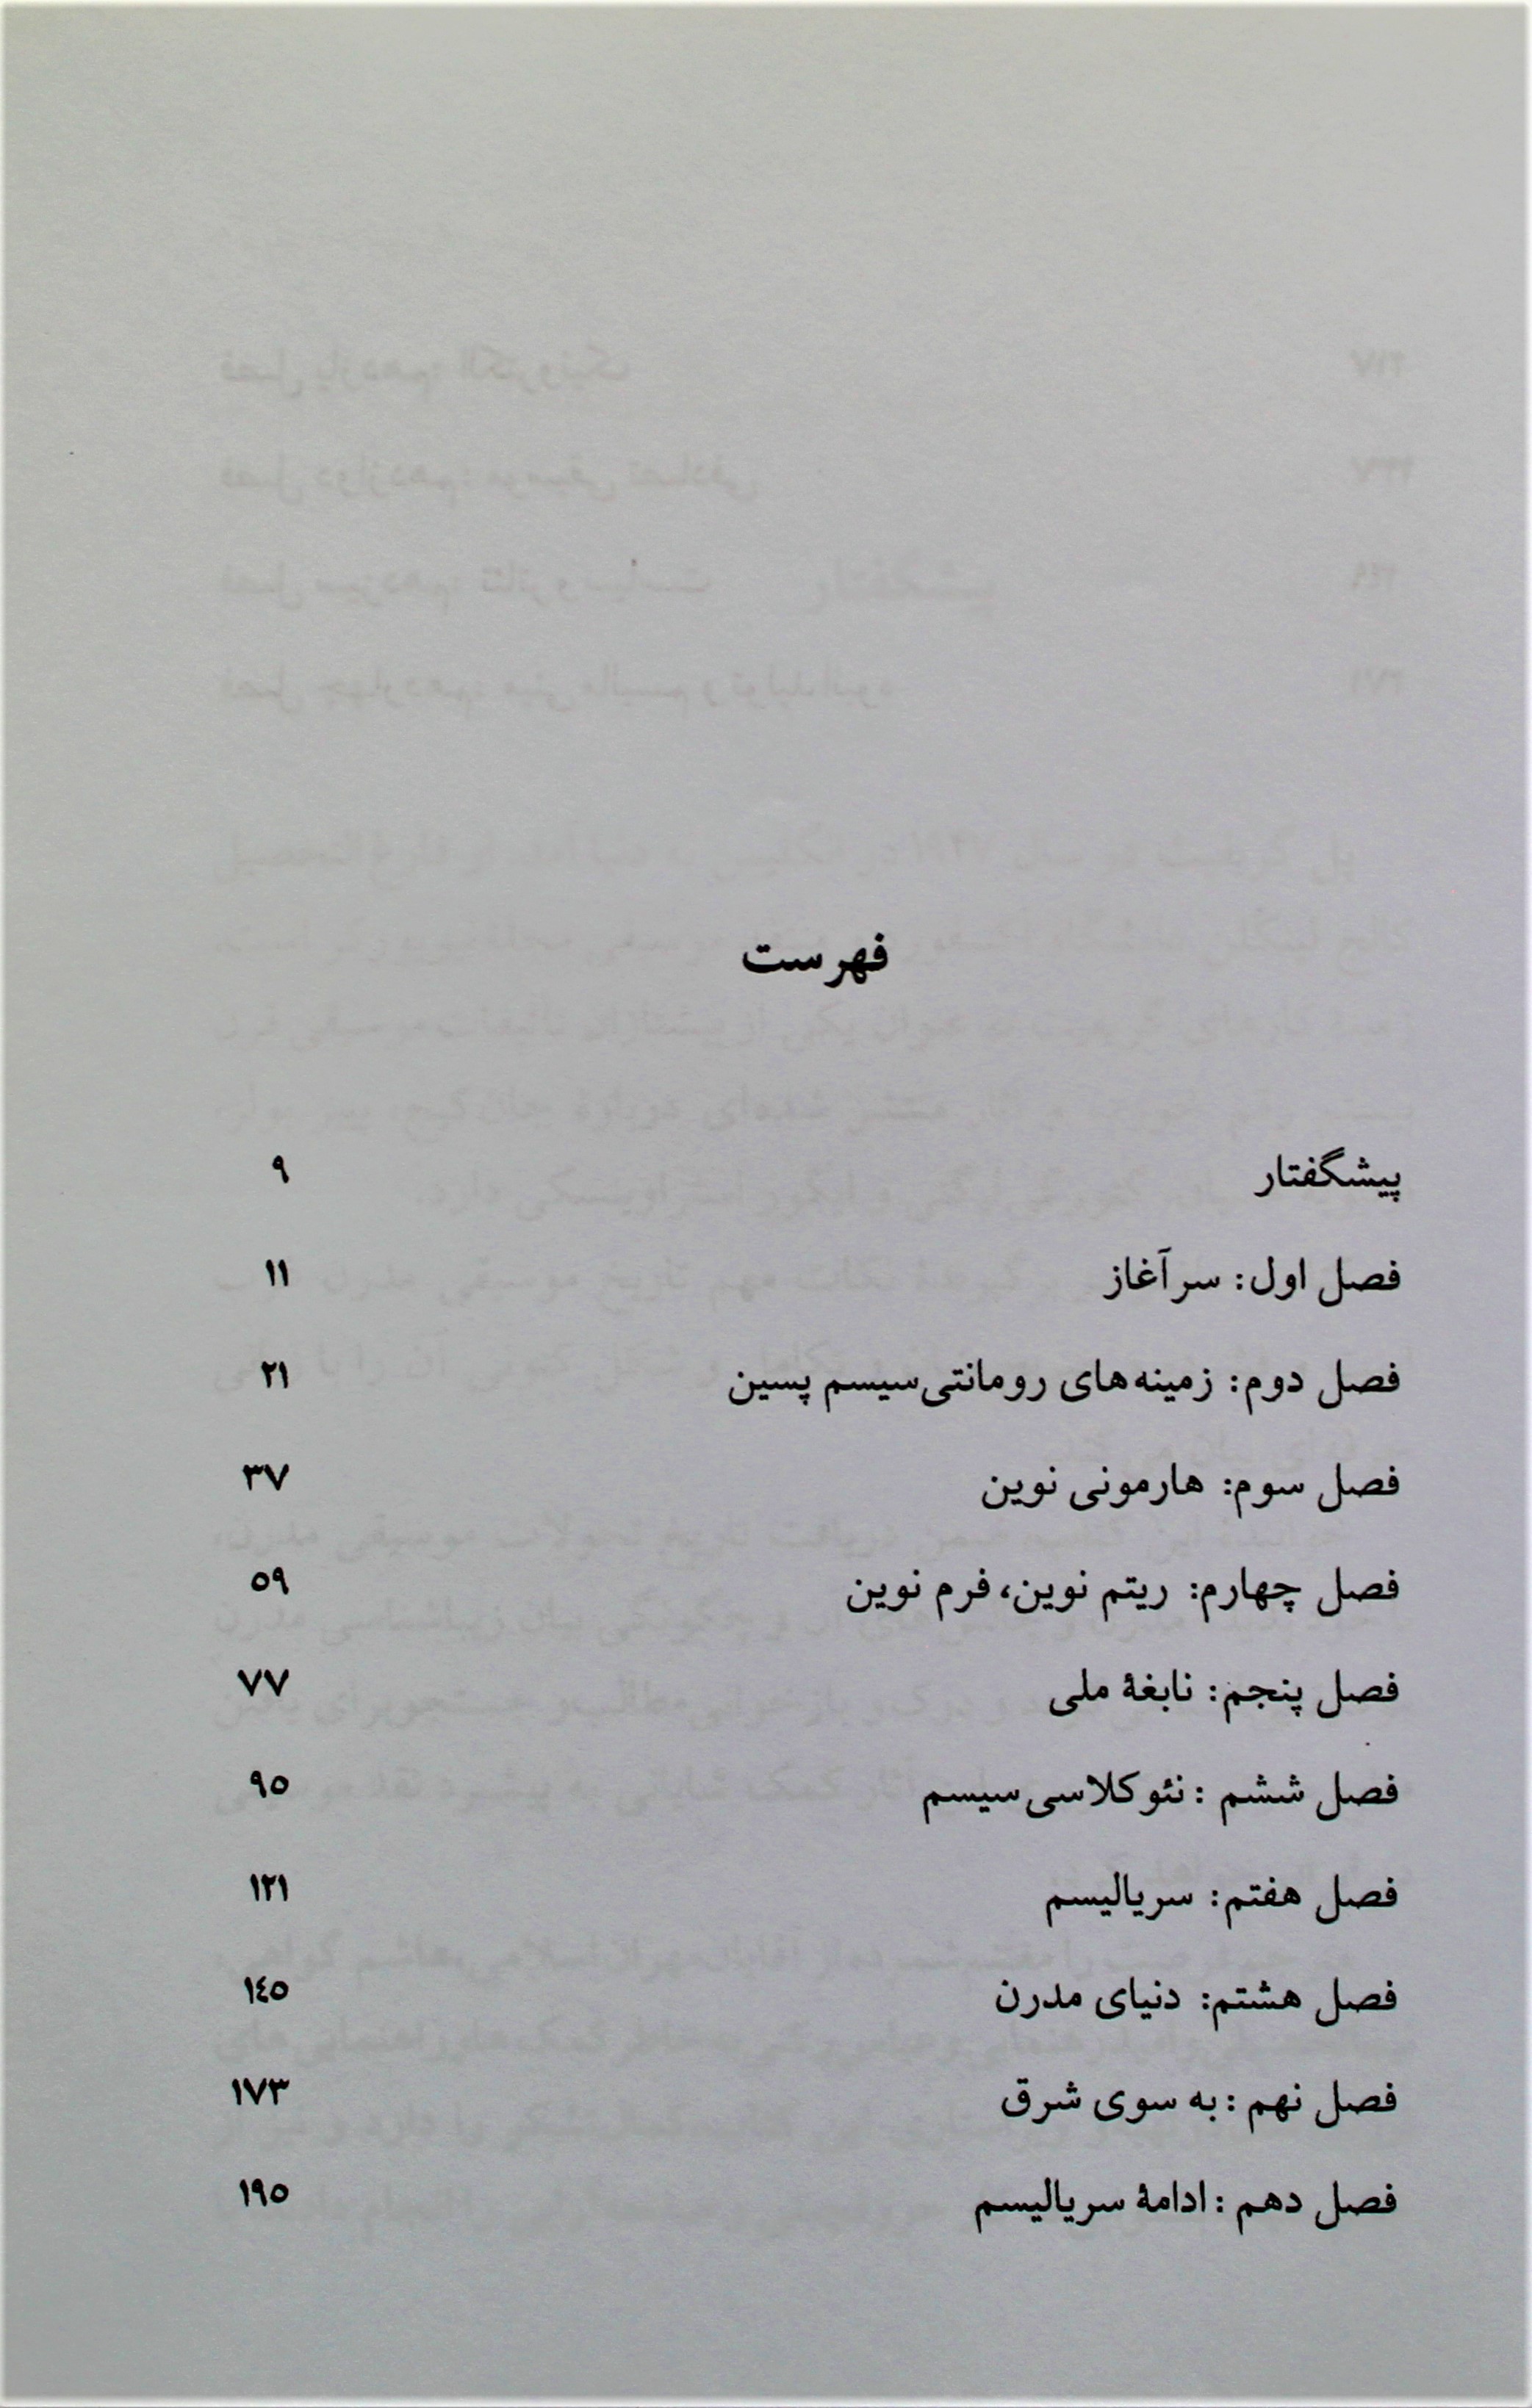 فهرست
پیشگفتار ۹
فصل اول: سرآغاز ۱۱
فصل دوم: زمینه‌های رومانتی‌سیسم پسین ۲۱
فصل سوم: هارمونی نوین ۳۷
فصل چهارم: ریتم نوین، فرم نوین ۵۹
فصل پنجم: نابغهٔ ملی ۷۷
فصل ششم : نئوکلاسی‌سیسم ۹۵
فصل هفتم: سریالیسم ۱۲۱
فصل هشتم: دنیای مدرن ۱٤۵
فصل نهم : به سوی شرق ۱۷۳
فصل دهم : ادامهٔ سریالیسم ۱۹۵